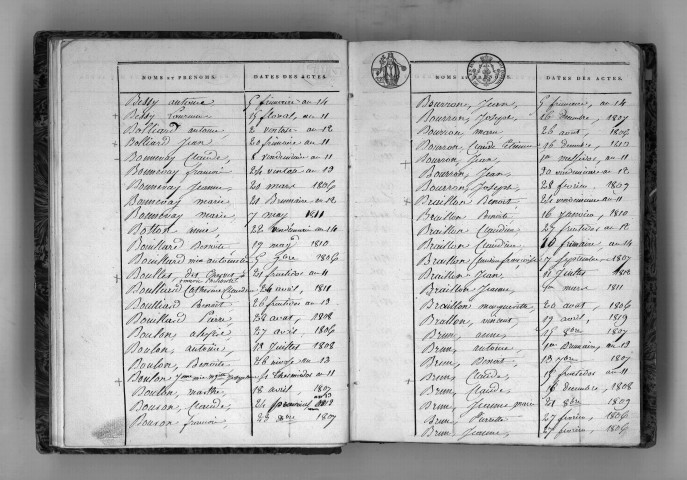 NOMS ET PRÉNOMS. DATES DES ACTES.
Bessy antoine 5 frimaire an 14
Bessy 15 floréal, an 11
Bolliard antoine, 2 ventose an 12
Bolliard Jean 20 frimaire an 11
Bonnenay Claude, 8 vendémiaire an 11
Bonnenay francois 24 ventose an 13
Bonnenay Jeanne, 20 mars 1806
Bonnenay marie 21 Brumaire an 12
Bonnenay marie 7 may 1811
Botton 22 vendémiaire an 14
Bouillard Benoite 19 may 1810
Bouillard antoinette 1806
Boulles des 21 fructidor an 11
Boulliard Catherine Claudine 24 avril, 1811
Boulliard Benoit 26 fructidor an 13
Bouillard Pierre 22 avril, 1808
Boulon, 27 avril 1806
Boulon, antoine, 13 Juillet 1808
Boulon, Benoite 26 nivose an 13
Boulon thermidor an 11
Boulon, marthe 18 avril 1807
Bouron, Claude, 24
Bouron francois 22 1807
NOMS DATES DES ACTES.
Bourron, Jean, 5 frimaire, an 14
Bourron, Joseph, 26 décembre, 1807
Bourron marie 26 aout, 1806
Bourron Claude Etienne 16 décembre
Bourron, Jean, 1er messidor, an 11
Bourron Jean 30 vendémiaire an 12
Bourron, Joseph, 28 février, 1807
Braillon Benoit, 24 vendémiaire an 11
Braillon Benoit 16 janvier, 1810
Braillon Claudine 27 fructidor an 12
Braillon Claudine 10 frimaire, an 14
Braillon françoise 7 Septembre 1807
Braillon Jean Juillet 1812
Braillon Jeanne mars 1811
Braillon marguerite 20 aout, 1806
Brallon, vincent, 19 avril, 1819
Brun, anne 15 8bre 1807
Brun, antoine 1er Brumaire, an 13
Brun, Benoit 13 1807
Brun, Claude, 15 fructidor an 11
Brun, Claude, 16 décembre, 1808
Brun, Jeanne marie 21 8bre 1807
Brun, Pierrette 27 février 1806
Brun Jeanne, 27 février, 1806